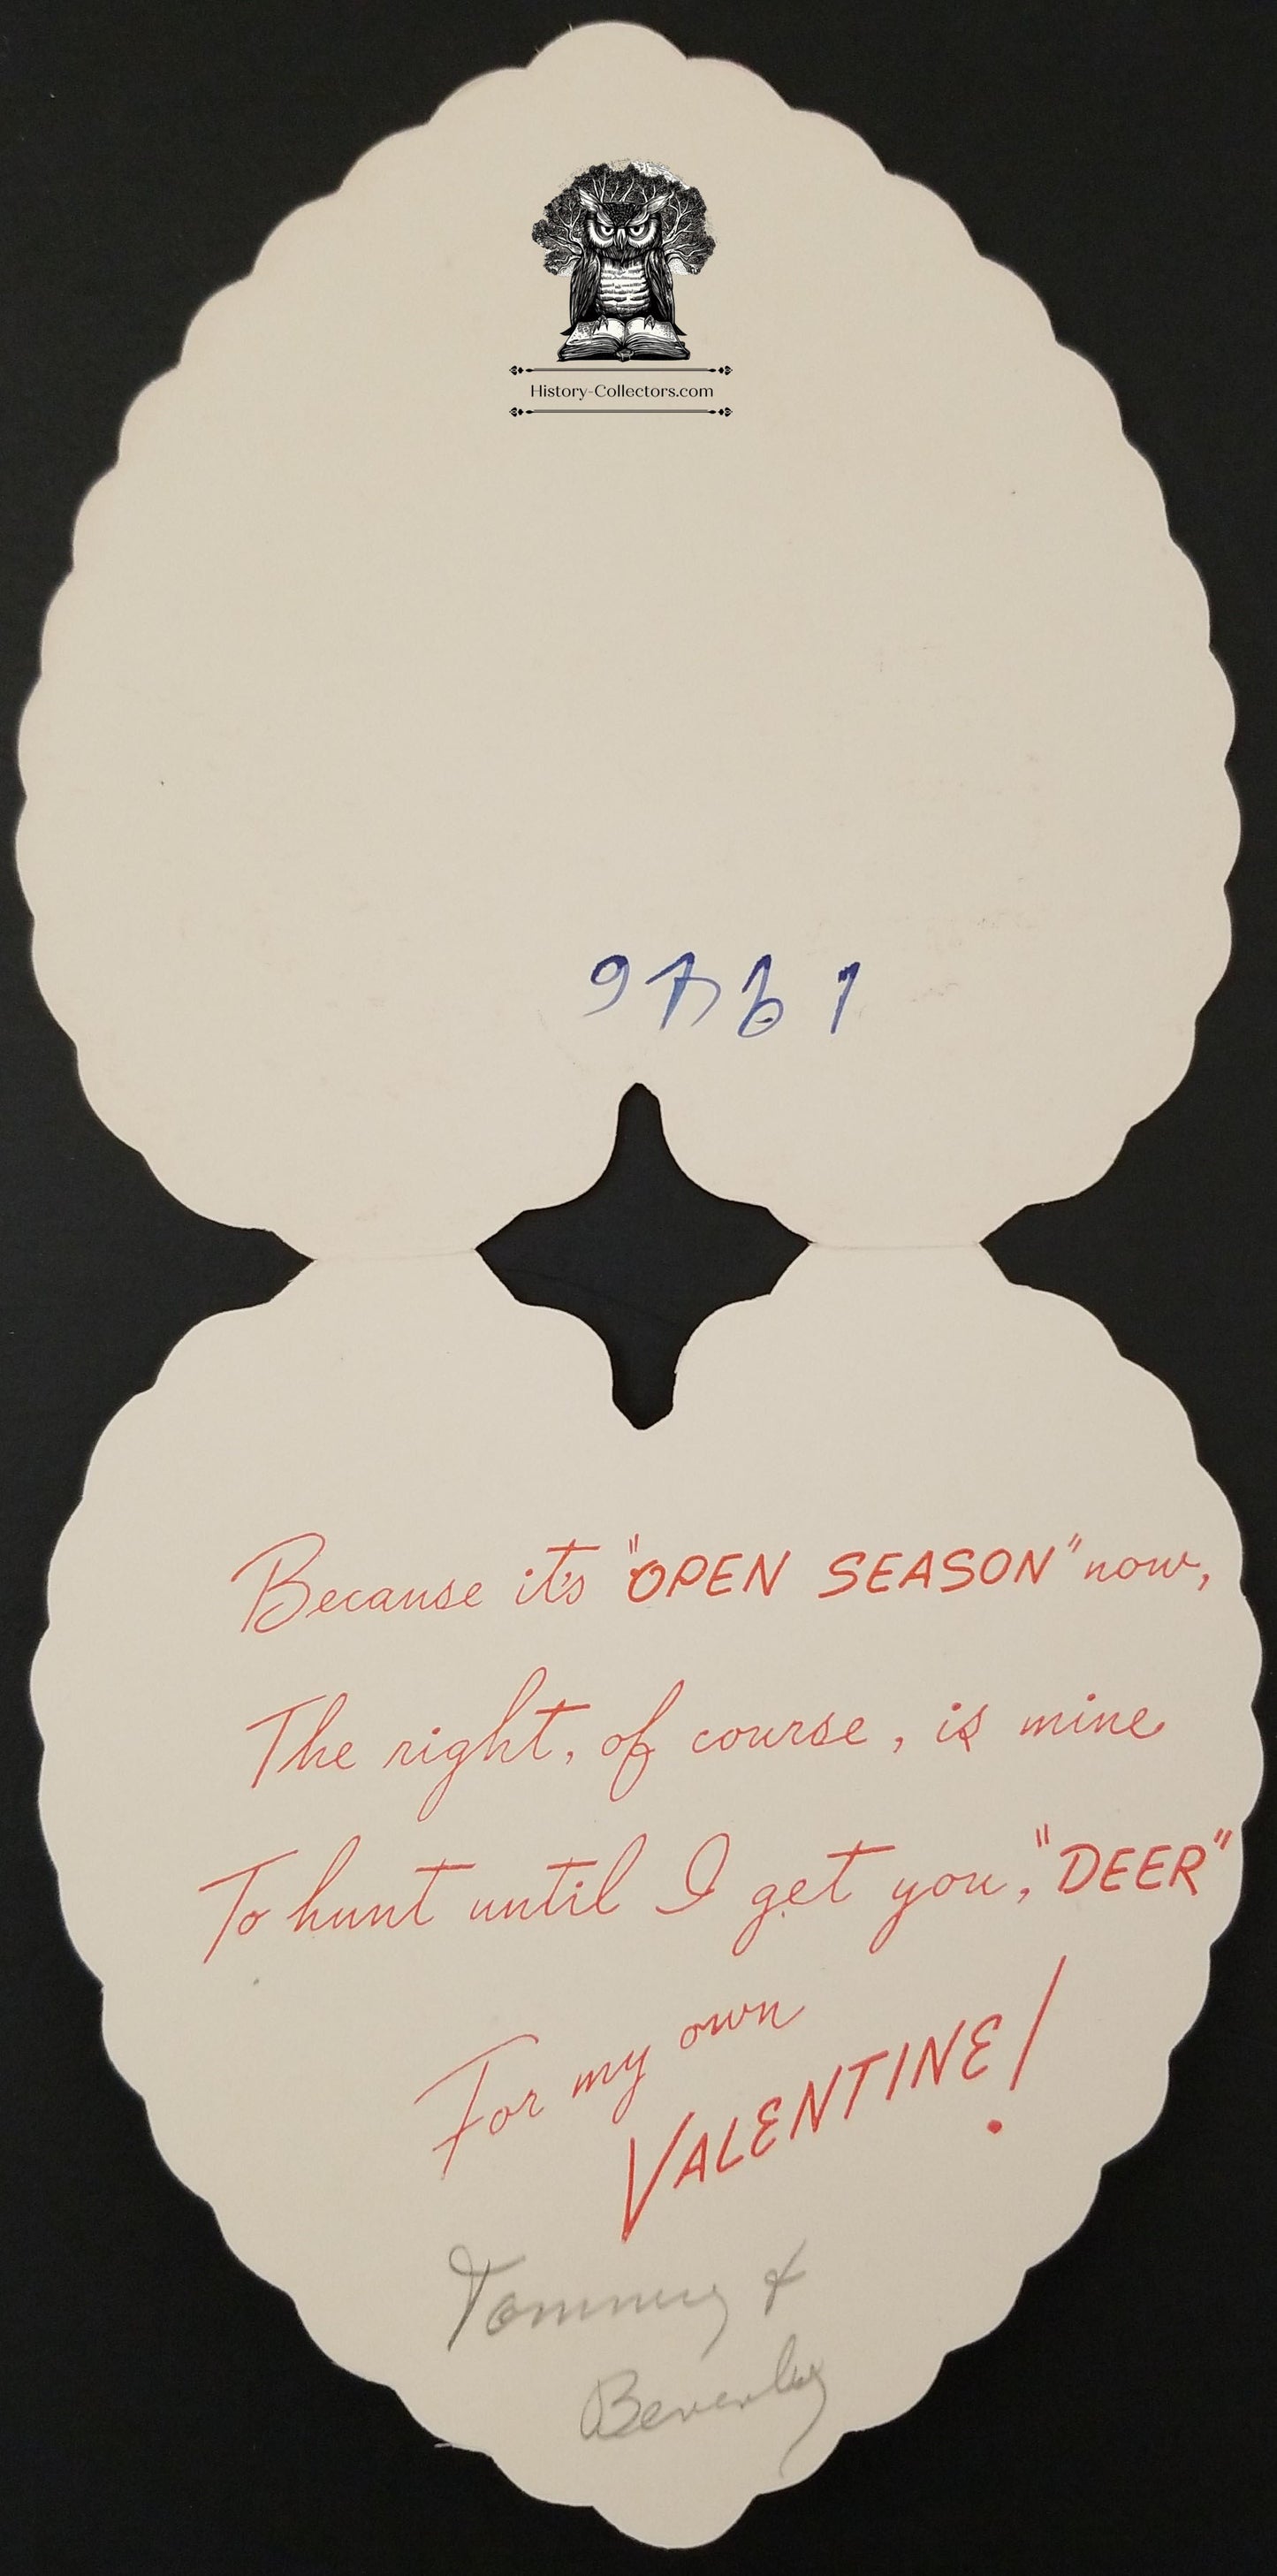 History-Collectors.com
1946
Because it's "OPEN SEASON" now,
The right, of course, is mine
To hunt until I get you, "DEER"
For my own
VALENTINE!
Tommy &
Beverley